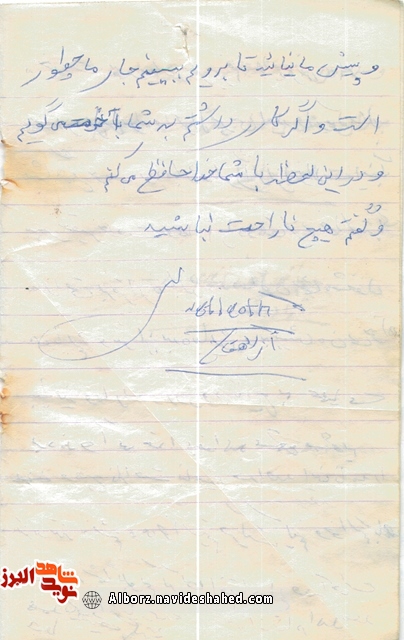 و پیش ما نیائید تا برویم ببینم جای ما چطور
است و اگر کاری داشتم به شما می‌گویم
و در این لحظه با شما خداحافظ می‌کنم
و گفتم هیچ ناراحت نباشید
شاهد
نوید
البرز
Alborz.navideshahed.com